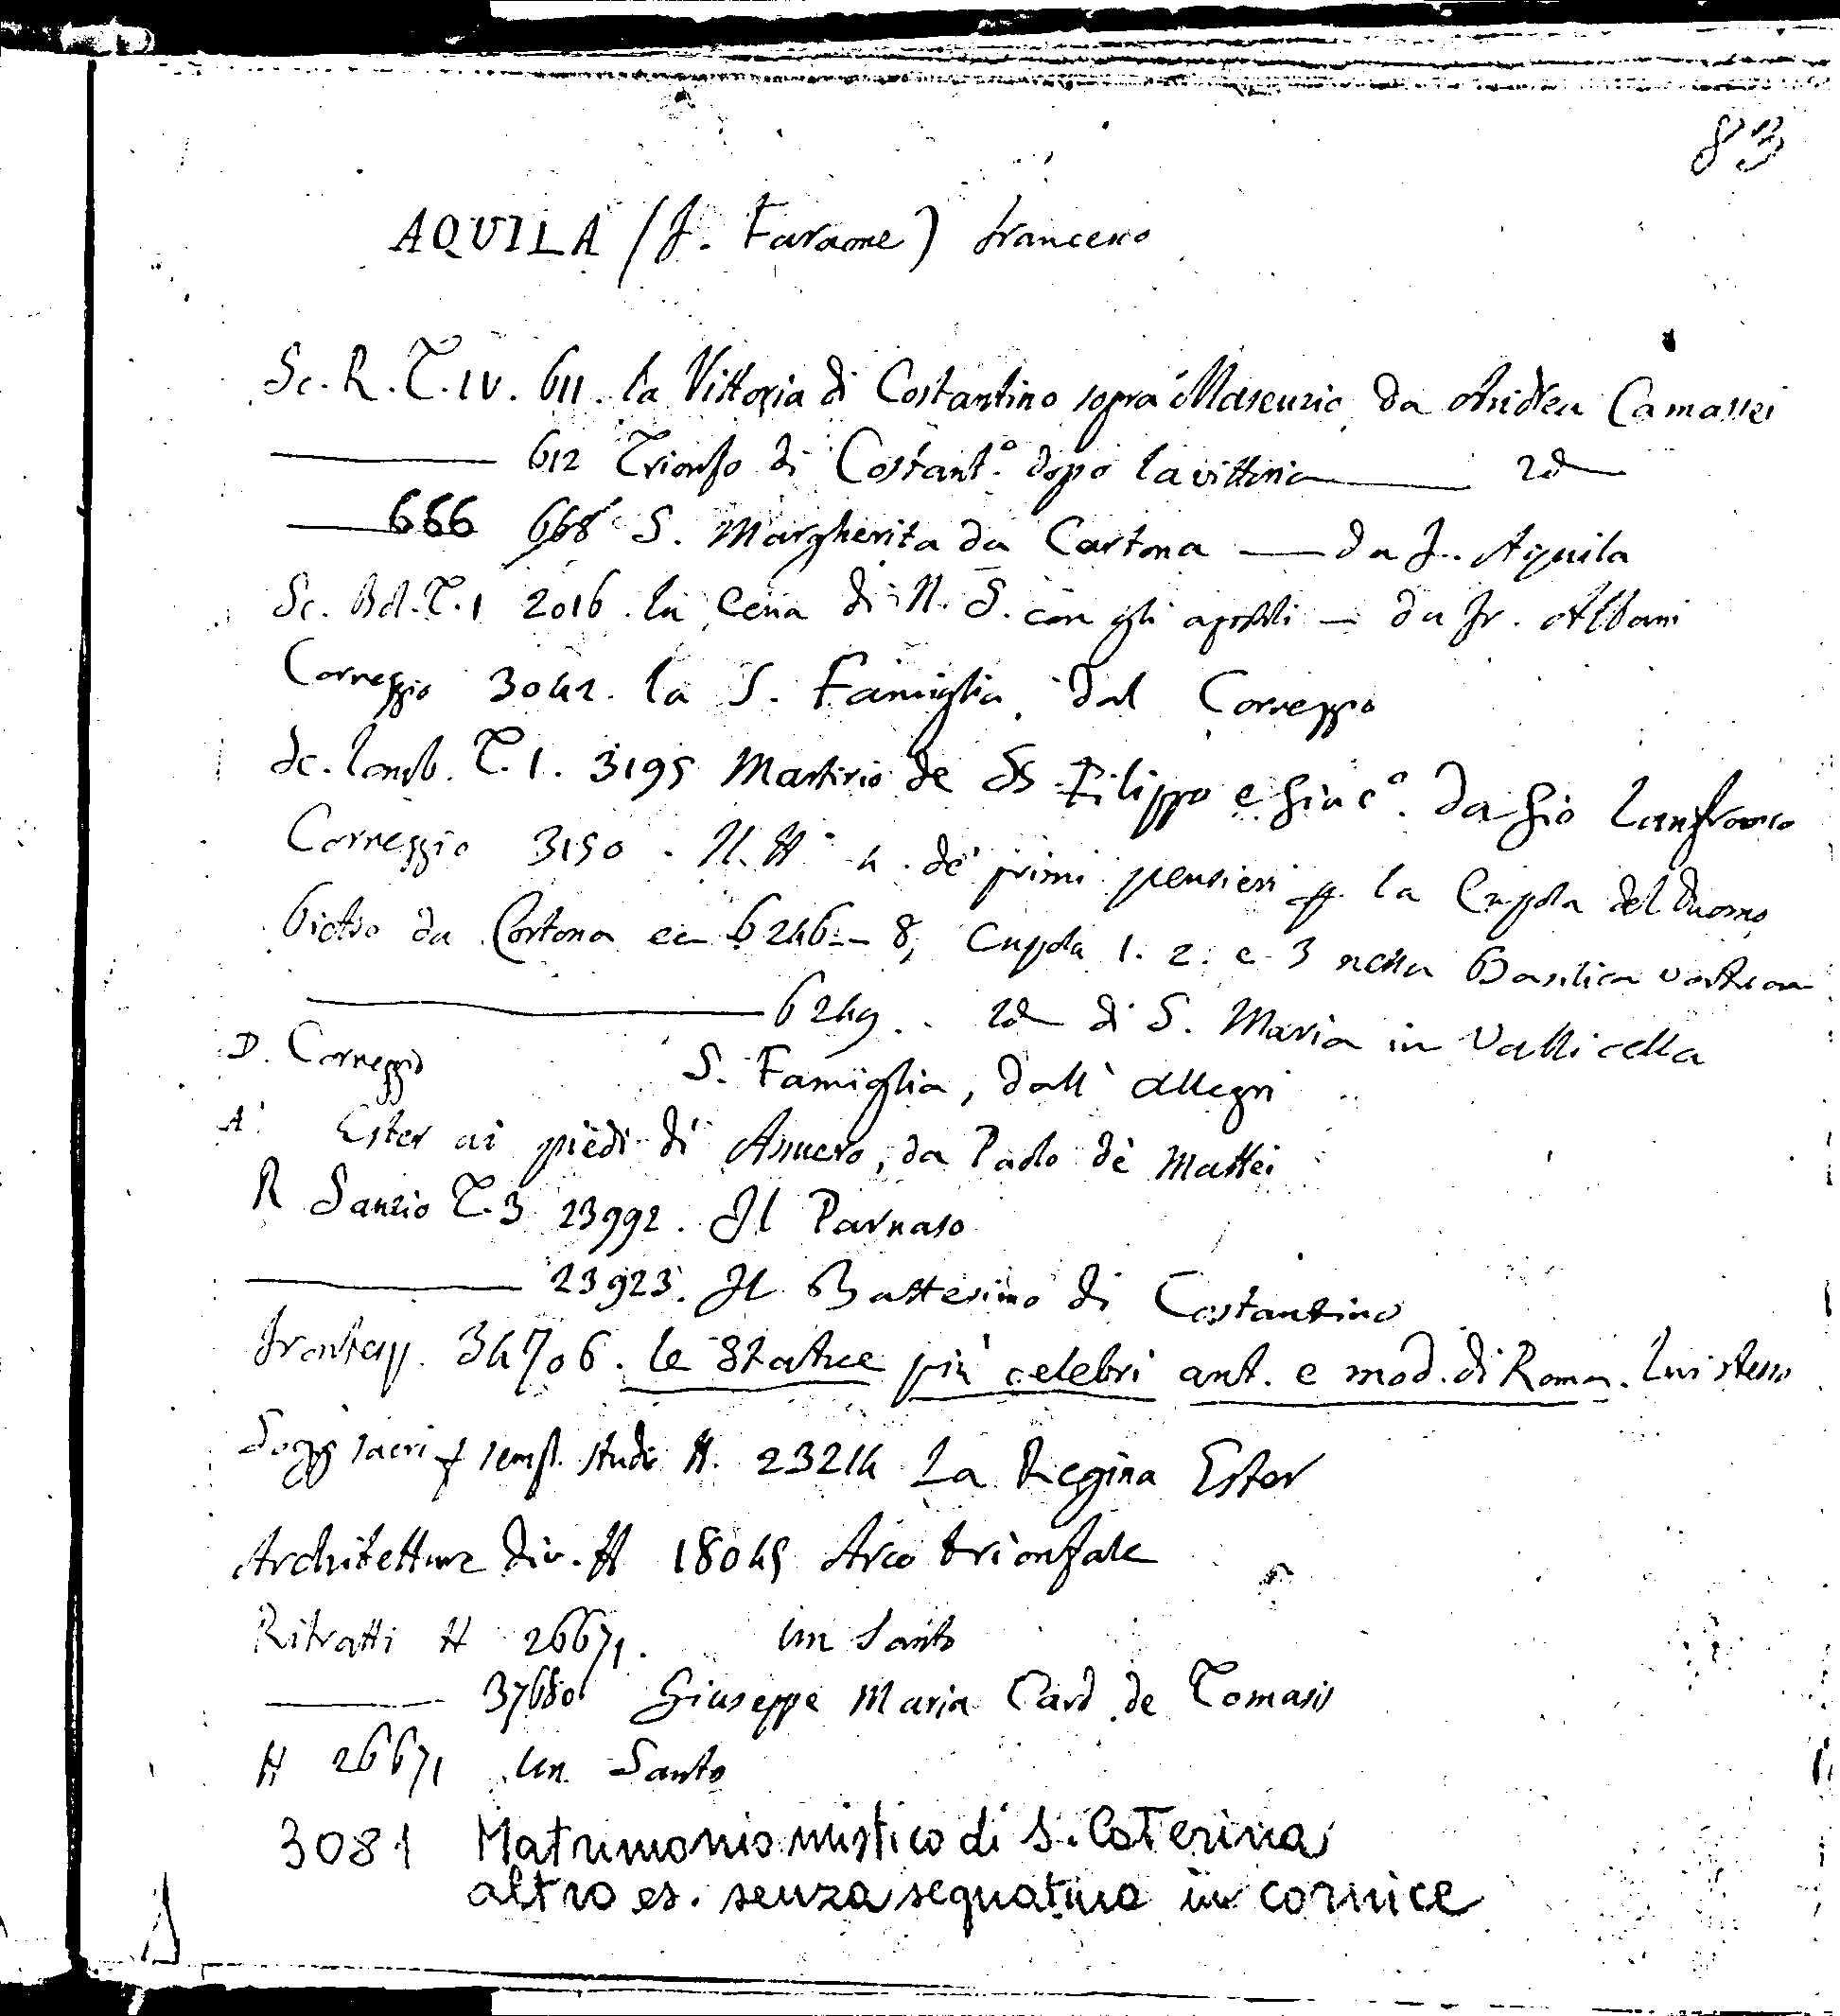 83
AQUILA (F. Faraone) Francesco
Sc. R. T. IV. 611. la Vittoria di Costantino sopra Masenzio, da Andrea Camassei
612 Trionfo di Costant.º dopo la vittoria id
666 668 S. Margherita da Cortona — da F. Aquila
Sc. Bol. T. 1 2016. la Cena di N. S. con gli apostoli — da Fr. Albani
Correggio 3042. la S. Famiglia, dal Correggio
Sc. Lomb. T. 1. 3195 Martirio de SS Filippo e Giacº. da Gio Lanfranco
Correggio 3150. N. H 4. de' primi pensieri p. la Cupola del Duomo
Pietro da Cortona 6246 - 8, Cupola 1. 2. e 3 nella Basilica Vatican
6249.. id di S. Maria in Vallicella
D. Correggio S. Famiglia, dall' Allegri
A. Ester ai piedi di Assuero, da Paolo de Mattei
R Sanzio T. 3 23992. Il Parnaso
23923. Il Battesimo di Costantino
Frontesp. 34706. le Statue più celebri ant. e mod. di Roma. Lui stesso
Sogg sacri sempl. studi H. 23214 La Regina Ester
Architetture div. H 18045 Arco trionfale
Ritratti H 26671. un Santo
37680 Giuseppe Maria Card. de Tomasis
H 26671 un Santo
3081 Matrimonio mistico di S. Caterina
altro es. senza segnatura in cornice